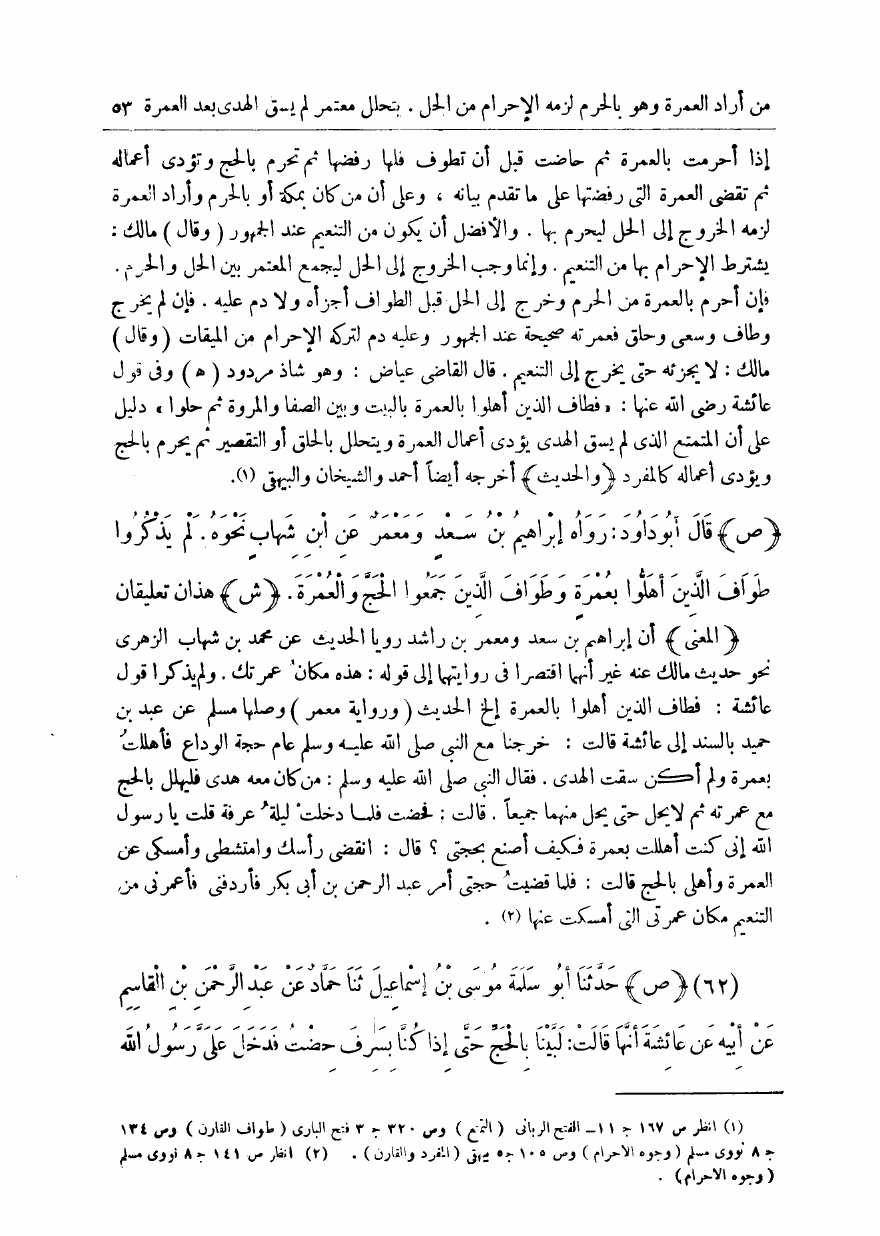 من أراد العمرة وهو بالحرم لزمه الإحرام من الحل . يتحلل معتمر لم يسق الهدى بعد العمرة ٥٣
إذا أحرمت بالعمرة ثم حاضت قبل أن تطوف فلها رفضها ثم تحرم بالحج وتؤدى أعماله
ثم تقضى العمرة التى رفضتها على ما تقدم بيانه ، وعلى أن من كان بمكة أو بالحرم وأراد العمرة
لزمه الخروج إلى الحل ليحرم بها . والأفضل أن يكون من التنعيم عند الجمهور ( وقال ) مالك :
يشترط الإحرام بها من التنعيم . وإنما وجب الخروج إلى الحل ليجمع المعتمر بين الحل والحرم .
فإن أحرم بالعمرة من الحرم وخرج إلى الحل قبل الطواف أجزأه ولا دم عليه . فإن لم يخرج
وطاف وسعى وحلق فعمرته صحيحة عند الجمهور وعليه دم لتركه الإحرام من الميقات ( وقال )
مالك : لا يجزئه حتى يخرج إلى التنعيم . قال القاضى عياض : وهو شاذ مردود ( ه ) وفى قول
عائشة رضى الله عنها : « فطاف الذين أهلوا بالعمرة بالبيت وبين الصفا والمروة ثم حلوا » دليل
على أن المتمتع الذى لم يسق الهدى يؤدى أعمال العمرة ويتحلل بالحلق أو التقصير ثم يحرم بالحج
ويؤدى أعماله كالمفرد ﴿والحديث﴾ أخرجه أيضاً أحمد والشيخان والبيهقى (١).
﴿ص﴾ قَالَ أَبُودَاوُدَ: رَوَاهُ إِبْرَاهِيمُ بْنُ سَعْدٍ وَمَعْمَرٌ عَنِ ابْنِ شِهَابٍ نَحْوَهُ. لَمْ يَذْكُرُوا
طَوَافَ الَّذِينَ أَهَلُّوا بِعُمْرَةٍ وَطَوَافَ الَّذِينَ جَمَعُوا الْحَجَّ وَالْعُمْرَةَ. ﴿ش﴾ هذان تعليقان
﴿المعنى﴾ أن إبراهيم بن سعد ومعمر بن راشد رويا الحديث عن محمد بن شهاب الزهرى
نحو حديث مالك عنه غير أنهما اقتصرا فى روايتهما إلى قوله : هذه مكانُ عمرتك . ولم يذكرا قول
عائشة : فطاف الذين أهلوا بالعمرة إلخ الحديث ( ورواية معمر ) وصلها مسلم عن عبد بن
حميد بالسند إلى عائشة قالت : خرجنا مع النبى صلى الله عليه وسلم عام حجة الوداع فأهللتُ
بعمرة ولم أكن سقت الهدى . فقال النبى صلى الله عليه وسلم : من كان معه هدى فليهلل بالحج
مع عمرته ثم لا يحل حتى يحل منهما جميعاً . قالت : فحضت فلما دخلتْ ليلةُ عرفة قلت يا رسول
الله إنى كنت أهللت بعمرة فكيف أصنع بحجتى ؟ قال : انقضى رأسك وامتشطى وأمسكى عن
العمرة وأهلى بالحج قالت : فلما قضيتُ حجتى أمر عبد الرحمن بن أبى بكر فأردفنى فأعمرنى من
التنعيم مكان عمرتى التى أمسكت عنها (٢) .
(٦٢) ﴿ص﴾ حَدَّثَنَا أَبُو سَلَمَةَ مُوسَى بْنُ إِسْمَاعِيلَ ثَنَا حَمَّادٌ عَنْ عَبْدِ الرَّحْمَنِ بْنِ الْقَاسِمِ
عَنْ أَبِيهِ عَنْ عَائِشَةَ أَنَّهَا قَالَتْ: لَبَّيْنَا بِالْحَجِّ حَتَّى إِذَا كُنَّا بِسَرِفَ حِضْتُ فَدَخَلَ عَلَىَّ رَسُولُ اللهِ
(١) انظر ص ١٦٧ ج ١١ــ الفتح الربانى ( التمتع ) وص ٣٢٠ ج ٣ فتح البارى ( طواف القارن ) وص ١٣٤
ج ٨ نووى مسلم ( وجوه الاحرام ) وص ١٠٥ ج ٥ بيهقى ( المفرد والقارن ) . (٢) انظر ص ١٤١ ج ٨ نووى مسلم
( وجوه الاحرام ) .